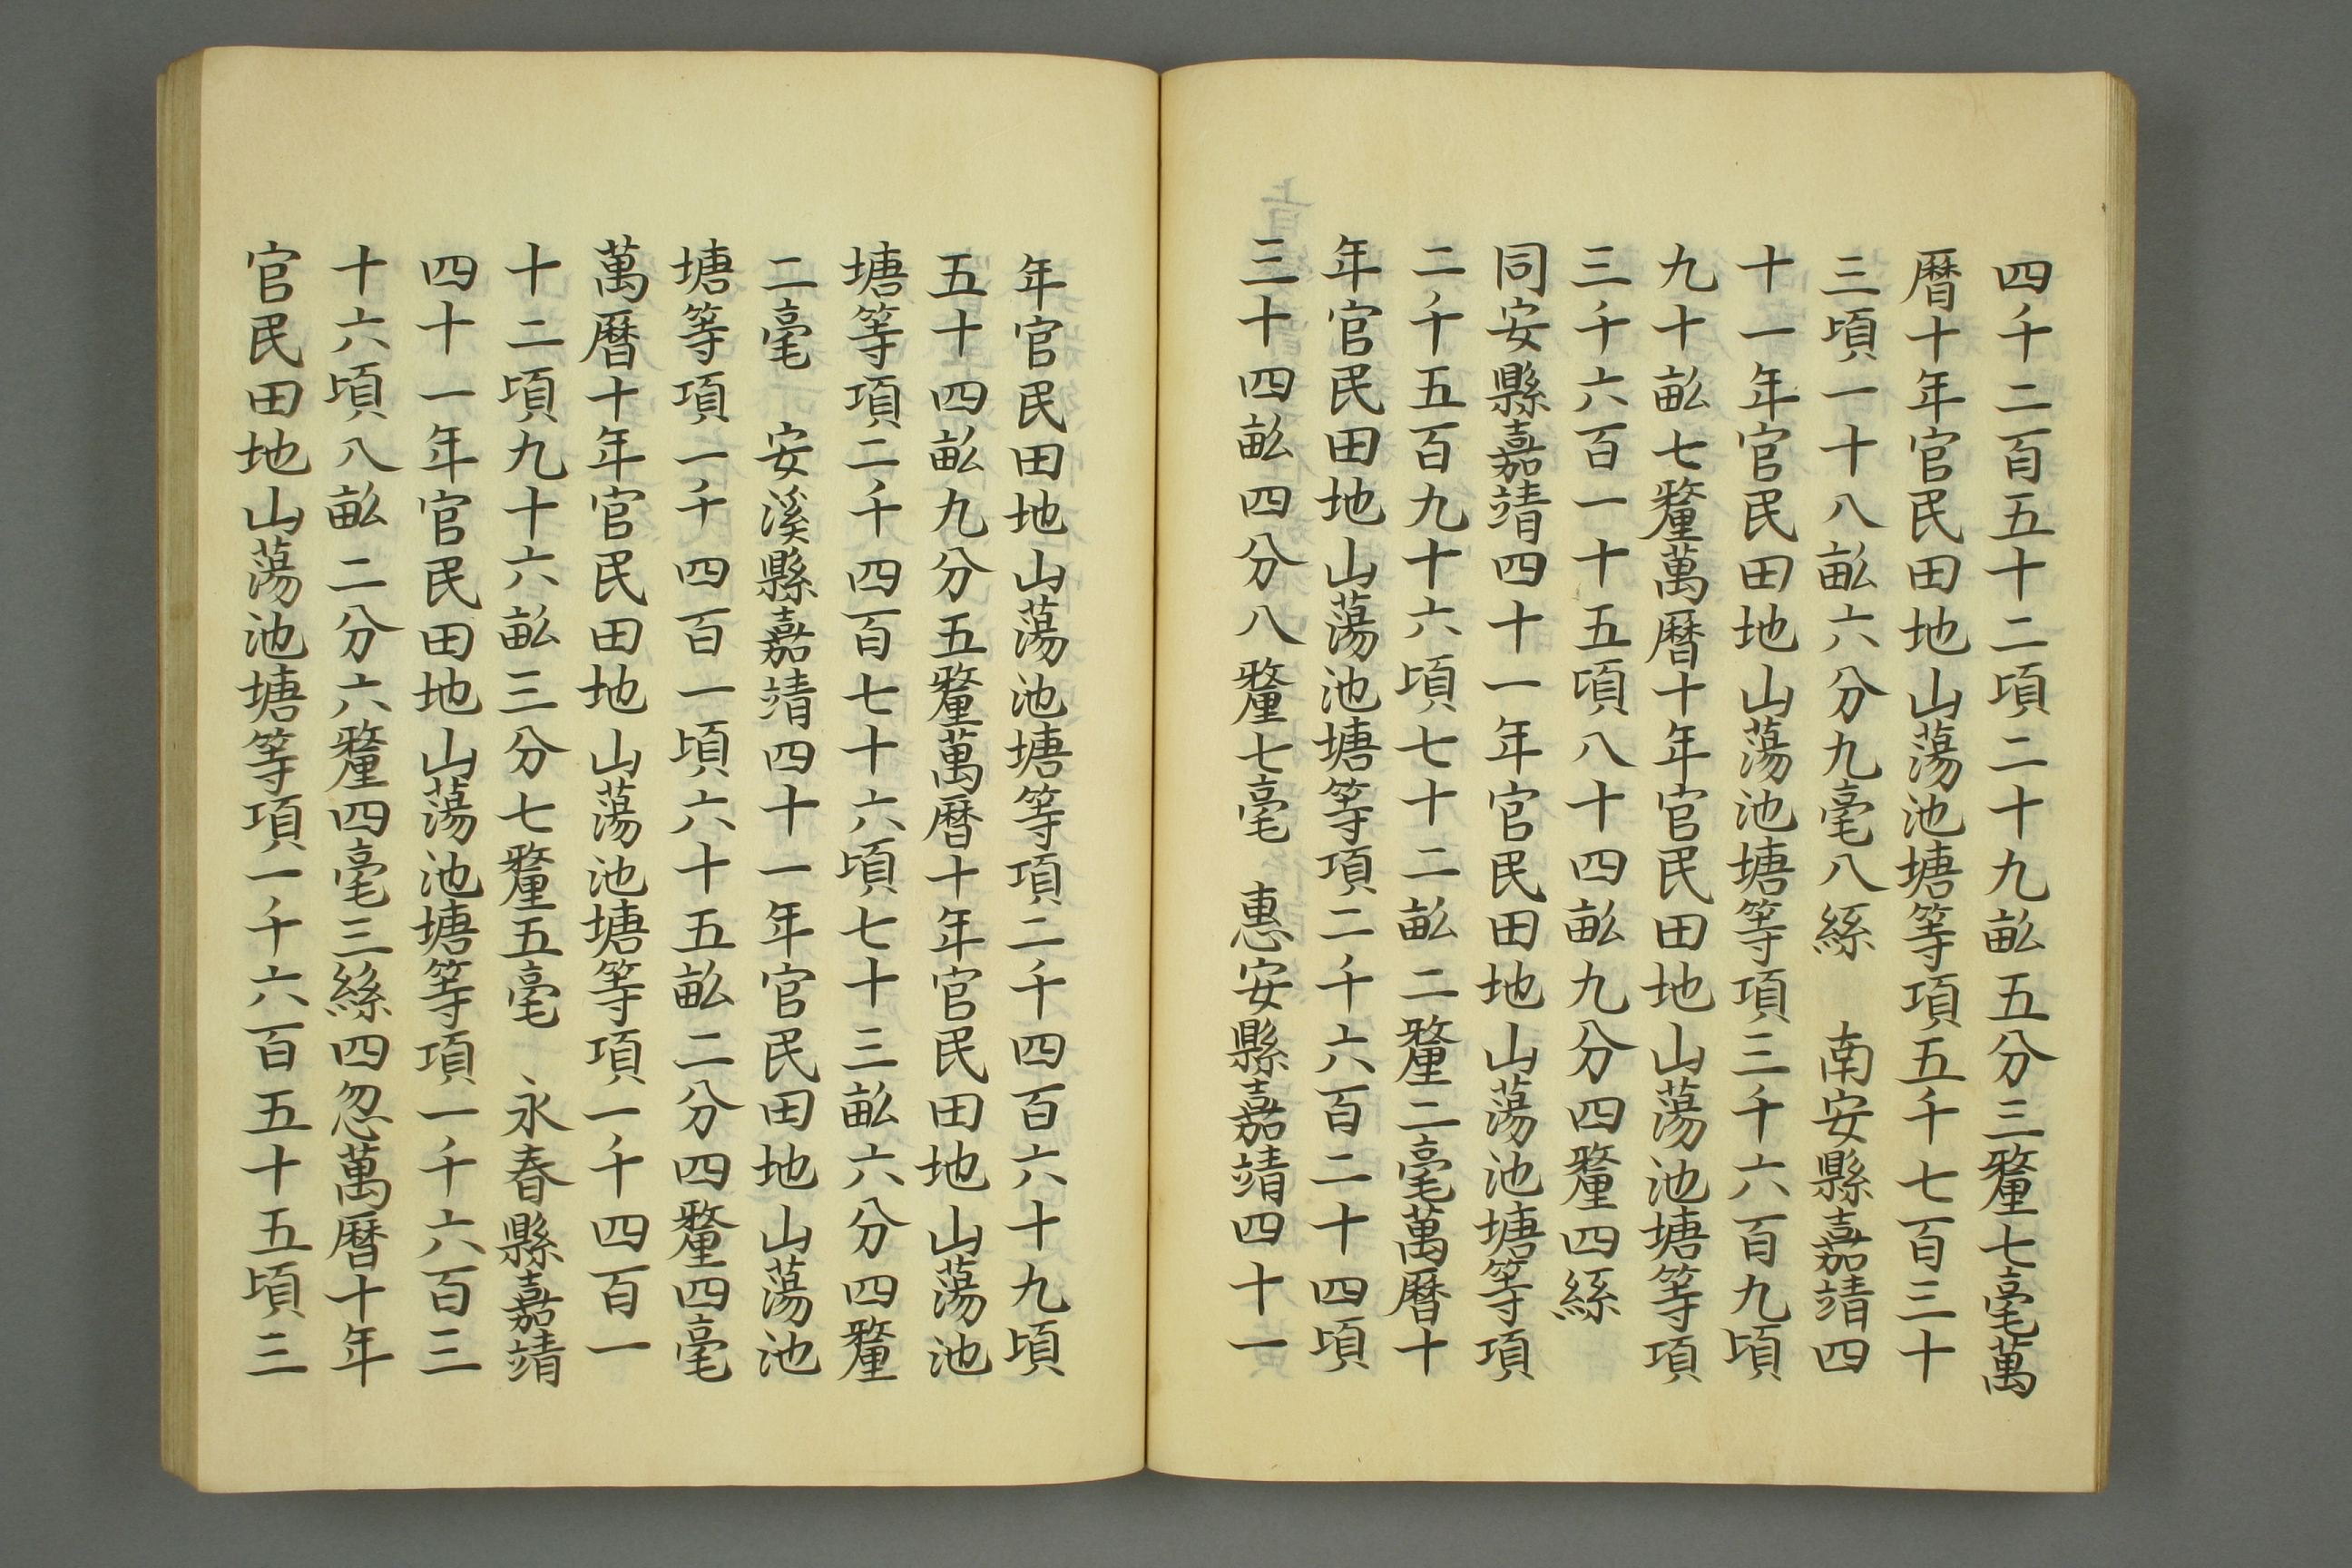 四千二百五十二頃二十九畝五分三釐七毫萬
曆十年官民田地山蕩池塘等項五千七百三十
三頃一十八畝六分九毫八絲　南安縣嘉靖四
十一年官民田地山蕩池塘等項三千六百九頃
九十畝七釐萬曆十年官民田地山蕩池塘等項
三千六百一十五頃八十四畝九分四釐四絲
同安縣嘉靖四十一年官民田地山蕩池塘等項
二千五百九十六頃七十二畝二釐二毫萬曆十
年官民田地山蕩池塘等項二千六百二十四頃
三十四畝四分八釐七毫　惠安縣嘉靖四十一
年官民田地山蕩池塘等項二千四百六十九頃
五十四畝九分五釐萬曆十年官民田地山蕩池
塘等項二千四百七十六頃七十三畝六分四釐
二毫　安溪縣嘉靖四十一年官民田地山蕩池
塘等項一千四百一頃六十五畝二分四釐四毫
萬曆十年官民田地山蕩池塘等項一千四百一
十二頃九十六畝三分七釐五毫　永春縣嘉靖
四十一年官民田地山蕩池塘等項一千六百三
十六頃八畝二分六釐四毫三絲四忽萬曆十年
官民田地山蕩池塘等項一千六百五十五頃三